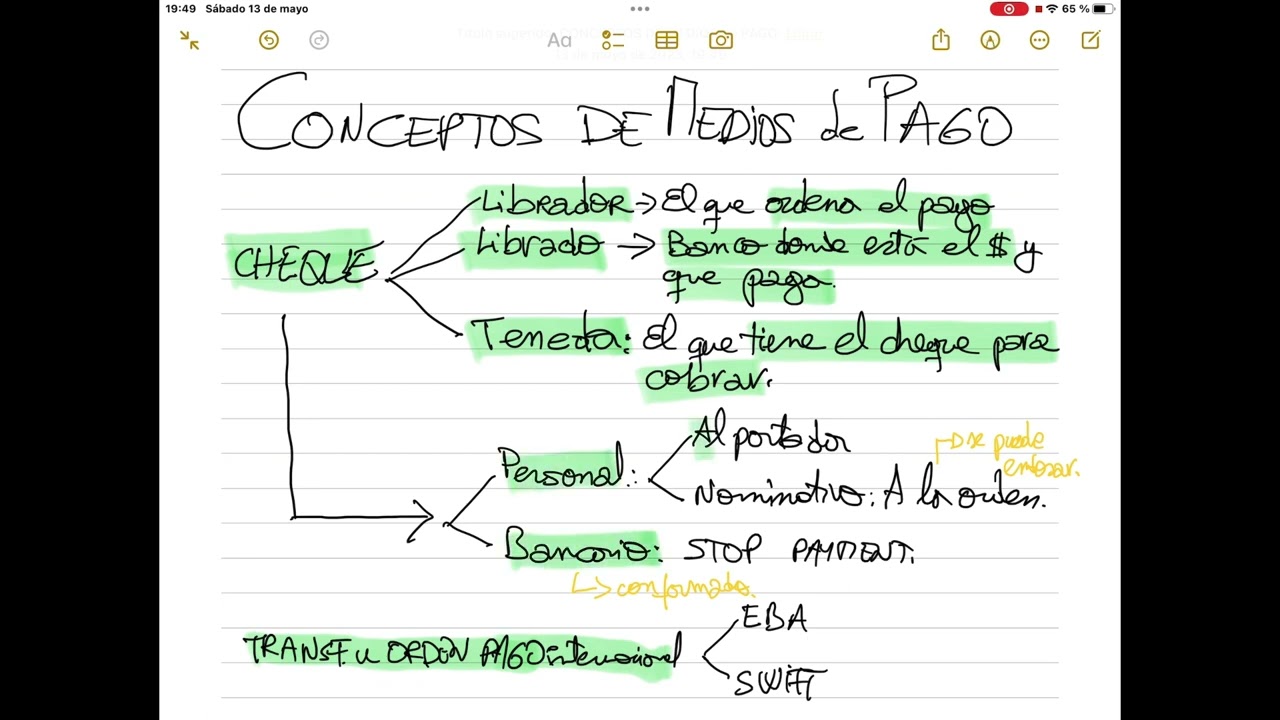 19:49 Sábado 13 de mayo
65 %
Aa
CONCEPTOS DE MEDIOS de PAGO
LIBRADOR → El que ordena el pago
CHEQUE
LIBRADO → Banco donde está el $ y
que paga.
Tenedor: El que tiene el cheque para
cobrar.
Al portador
Personal:
se puede
endosar.
Nominativo: A la orden.
Bancario: STOP PAYMENT.
↳ conformado.
EBA
TRANSF u ORDEN PAGO internacional
SWIFT